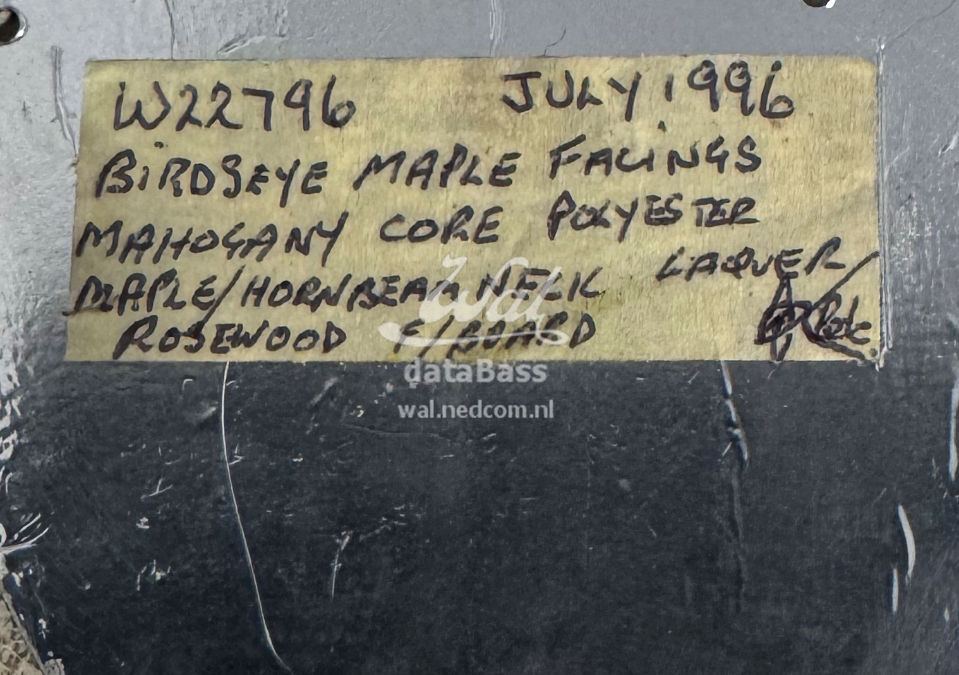 W22796 JULY 1996
BIRDSEYE MAPLE FACINGS
MAHOGANY CORE POLYESTER
MAPLE/HORNBEAM NECK LAQUER
ROSEWOOD F/BOARD
Wal
dataBass
wal.nedcom.nl